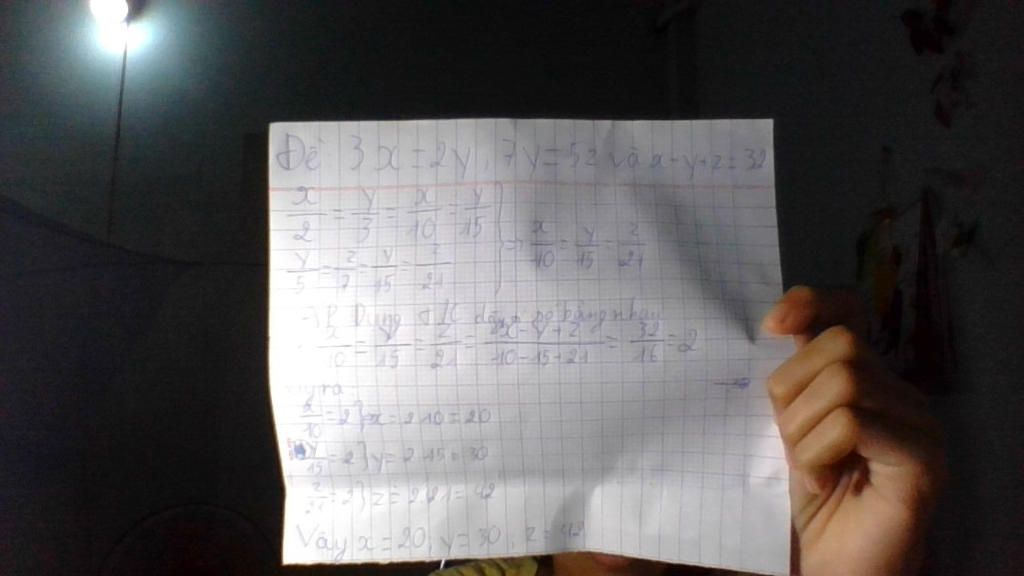 Đề: 3x = 2y, 7y = 5z và x - y + z = 32
x/2 = y/3 = x/10 = y/15
y/5 = z/7 = y/15 = z/21 } => x/10 = y/15 = z/21
Áp Dụng T/C dãy bằng nhau
x/10 = y/15 = z/21 = x - y + z/10 - 15 + 21 = 32/16 = 2
x/10 = 2 } x = 2.10 = 20
y/15 = 2 } y = 2.15 = 30
z/21 = 2 } z = 2.21 = 42
Vậy x = 20, y = 30, z = 42